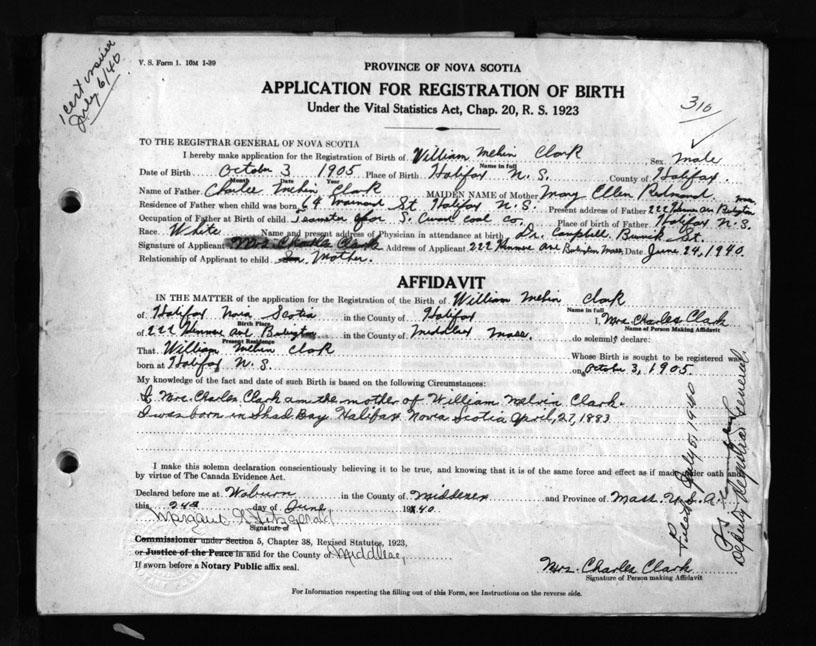 V. S. Form 1. 10M 1-39
1 cert issued
July 6/40
PROVINCE OF NOVA SCOTIA
APPLICATION FOR REGISTRATION OF BIRTH
Under the Vital Statistics Act, Chap. 20, R. S. 1923
310
TO THE REGISTRAR GENERAL OF NOVA SCOTIA
I hereby make application for the Registration of Birth of William Melvin Clark Sex Male
Name in full
Date of Birth October 3 1905 Place of Birth Halifax N. S. County of Halifax.
Month Date Year
Name of Father Charles Melvin Clark MAIDEN NAME of Mother Mary Ellen Redmond
Residence of Father when child was born 64 St. Halifax N. S. Present address of Father 222 Ave Mass
Occupation of Father at Birth of child Teamster for S. Cunard coal co. Place of birth of Father Halifax N. S.
Race White Name and present address of Physician in attendance at birth Dr. Campbell St.
Signature of Applicant Mrs. Charles Clark Address of Applicant 222 Ave Mass. Date June 24, 1940.
Relationship of Applicant to child Son Mother.
AFFIDAVIT
IN THE MATTER of the application for the Registration of the Birth of William Melvin Clark
Name in full
of Halifax Nova Scotia in the County of Halifax I, Mrs Charles Clark
Birth Place Name of Person Making Affidavit
of 222 Ave in the County of Middlesex Mass. do solemnly declare:
Present Residence
That William Melvin Clark Whose Birth is sought to be registered was
born at Halifax N. S. on October 3, 1905.
My knowledge of the fact and date of such Birth is based on the following Circumstances:
I Mrs. Charles Clark am the mother of William Melvin Clark.
I was born in Shad Bay Halifax Nova Scotia April, 27, 1883
I make this solemn declaration conscientiously believing it to be true, and knowing that it is of the same force and effect as if made under oath and
by virtue of The Canada Evidence Act.
Declared before me at Woburn in the County of Middlesex and Province of Mass. U.S.A.
this 24th day of June 1940.
Margaret Fitzgerald
Signature of
Commissioner under Section 5, Chapter 38, Revised Statutes, 1923,
or Justice of the Peace in and for the County of Middlesex,
If sworn before a Notary Public affix seal.
Mrs. Charles Clark
Signature of Person making Affidavit
For Information respecting the filling out of this Form, see Instructions on the reverse side.
July 5, 1940
Deputy Registrar General